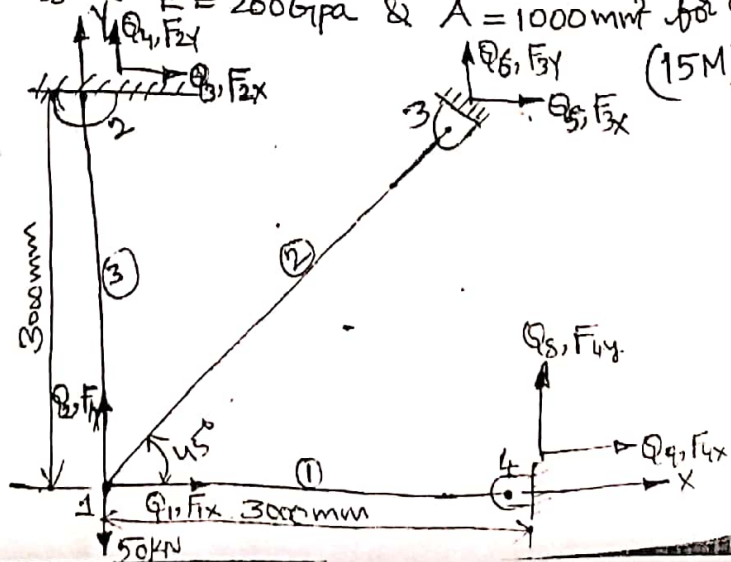 E = 200Gpa & A = 1000mm² for
(15M)
Y Q4, F2Y
Q3, F2X
2
Q6, F3Y
Q5, F3X
3
3000mm
3
2
Q8, F4y.
Q2, F1y
45°
1
4
Q9, F4x
X
1
Q1, F1x 3000mm
50KN